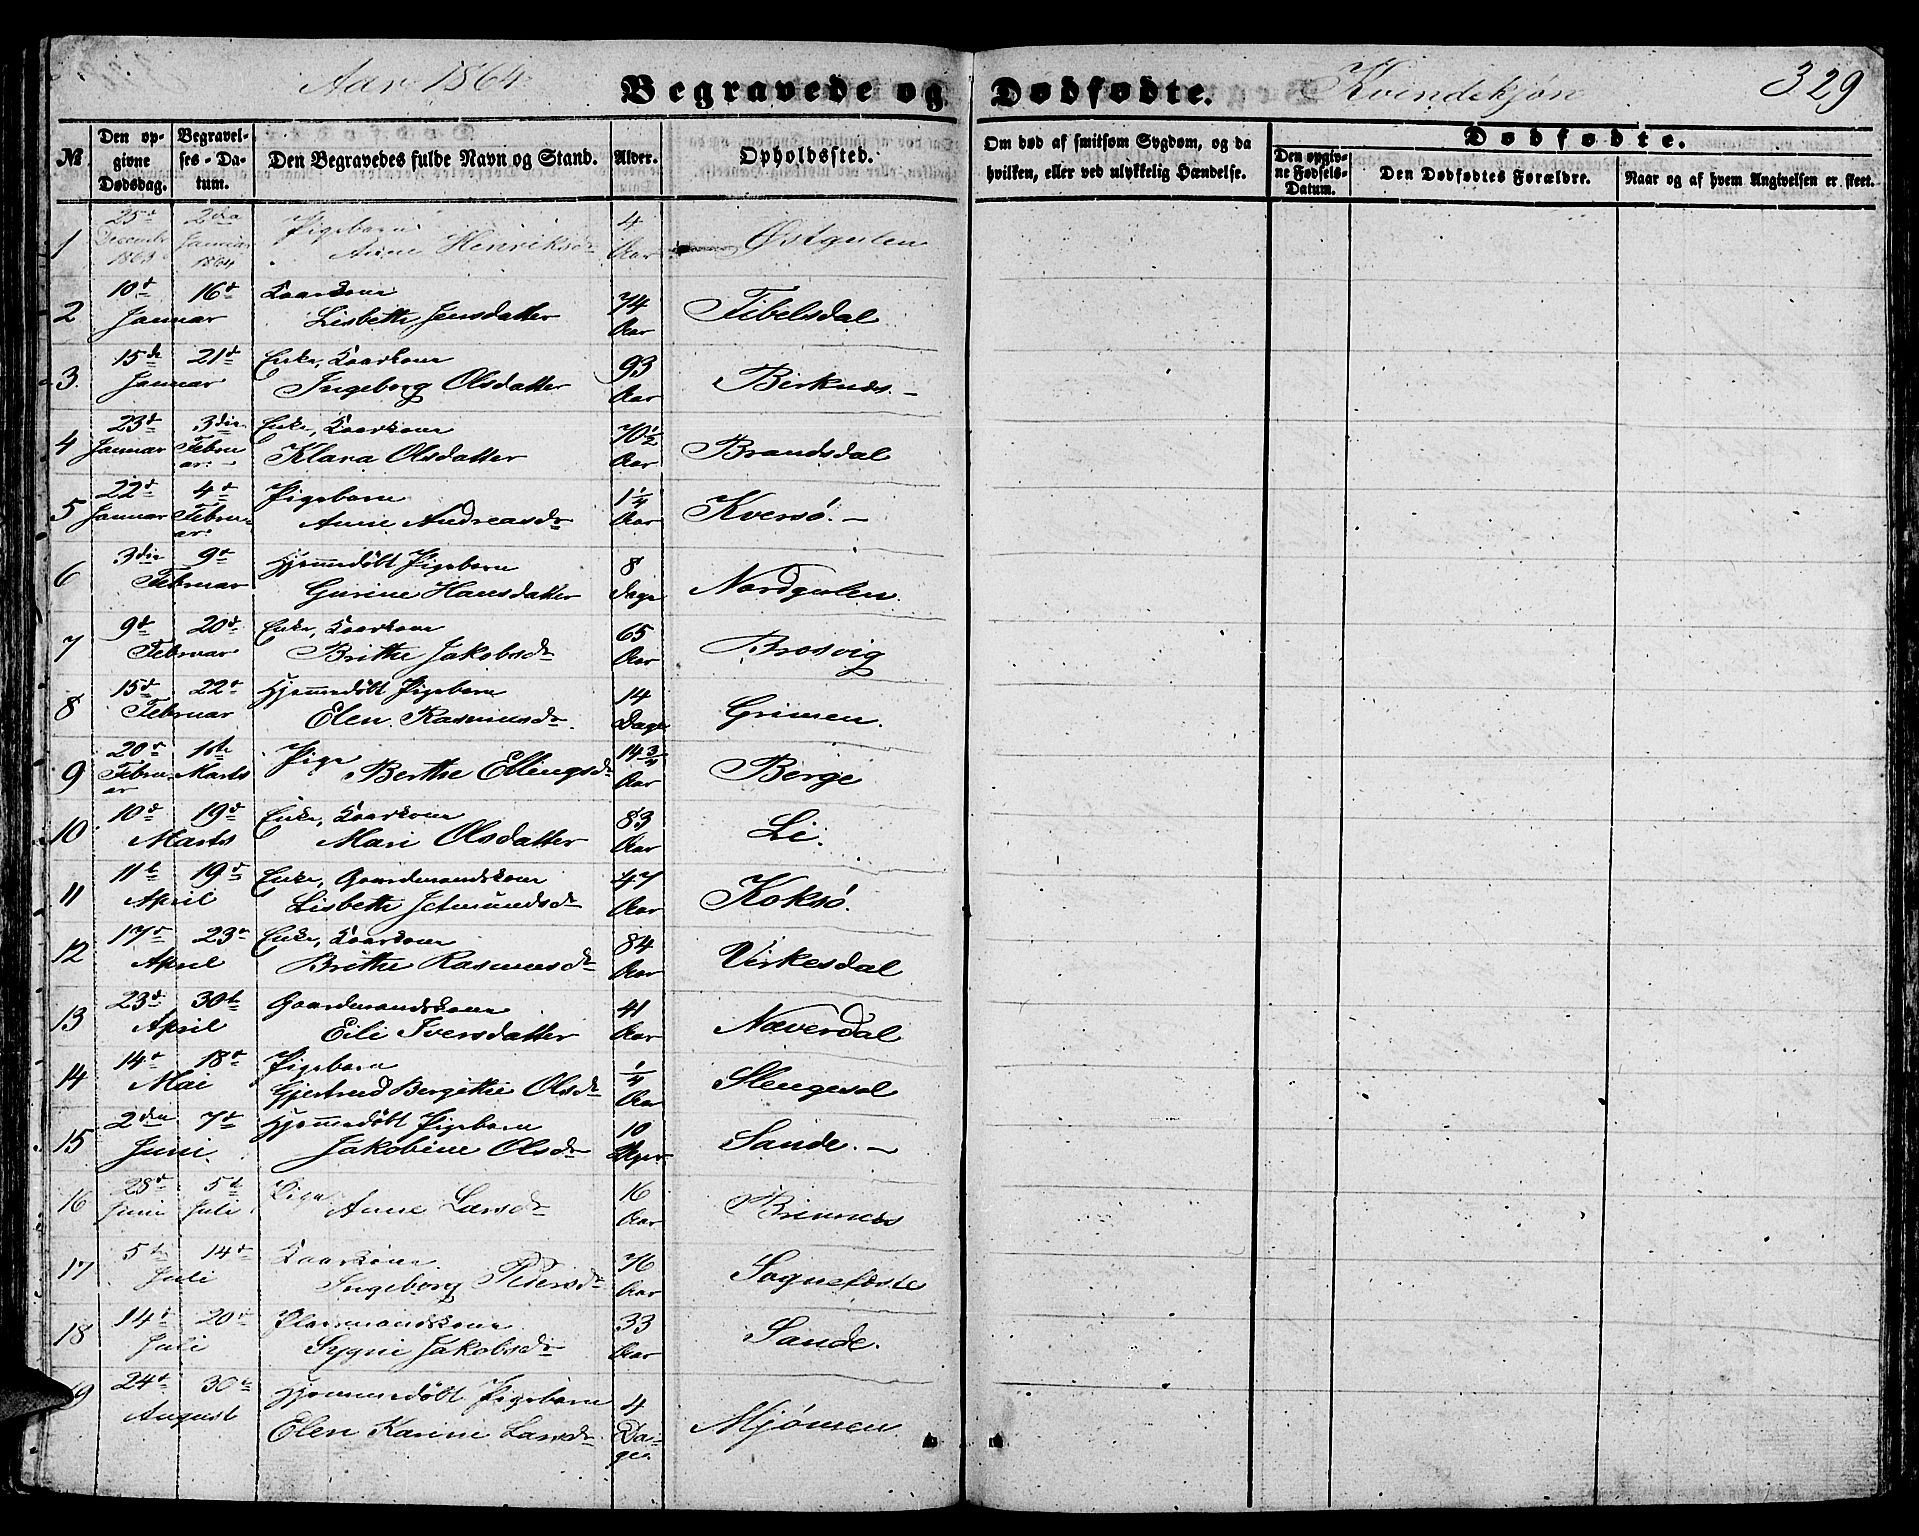 Aar 1864
Begravede og Dødfødte.
Kvindekjøn
329
No.
Den opgivne Dødsdag.
Begravelses-Datum.
Den Begravedes fulde Navn og Stand.
Alder.
Opholdssted.
Om død af smitsom Sygdom, og da hvilken, eller ved ulykkelig Hændelse.
Dødfødte.
Den opgivne Fødsels-Datum.
Den Dødfødtes Forældre.
Naar og af hvem Angivelsen er skeet.
1 25de December 1863 2den Januar 1864 Pigebarn Anne Henriksdr 4 Aar Østgulen
2 10de 16de Januar Kaarkone Lisbethe Jensdatter 74 Aar Tibelsdal
3. 15de 21de Januar Enke, Kaarkone Ingeborg Olsdatter 93 Aar Birknes.
4 23de Januar 3die Februar Enke, Kaarkone Klara Olsdatter 70 1/2 Aar Brandsdal
5 22de Januar 4de Februar Pigebarn Anne Andreasdr 1 1/4 Aar Kversø.
6 3die 9de Februar Hjemmedøbt Pigebarn Gurine Hansdatter 8 Dage Nordgulen.
7 9de 20de Februar Enke, Kaarkone Brithe Jakobsdr 65 Aar Brosvig
8 15de 22de Februar Hjemmedøbt Pigebarn Elen Rasmusdr 14 Dage Grimen.
9 20de Februar 1ste Marts Pige Berthe Ellingsdr 14 3/4 Aar Berge
10 10de 19de Marts Enke, Kaarkone Mari Olsdatter 83 Aar Li.
11 11te 19de April Enke, Gaardmandskone Lisbethe Jetmundsdr 47 Aar Koksø.
12 17de 23de April Enke, Kaarkone Brithe Rasmusdr 84 Aar Virkesdal
13 23de 30te April Gaardmandskone Eili Iversdatter 41 Aar Næverdal
14 14de 18de Mai Pigebarn Gjertrud Bergithe Olsdr 1/4 Aar Slengesol
15 2den 7de Juni. Hjemmedøbt Pigebarn Jakobine Olsdr 10 Sande.
16 28de Juni 5te Juli Pige Anne Larsdr 16 Aar Brinnæs
17 5te 14de Juli Kaarkone. Ingeborg Pedersdr 76 Aar Sognefæste
18 14de 20de Juli Pladsmandskone Sygni Jakobsdr 33 Aar Sande.
19 24de 30te August Hjemmedøbt Pigebarn Elen Karine Larsdr 4 Dage. Mjømen